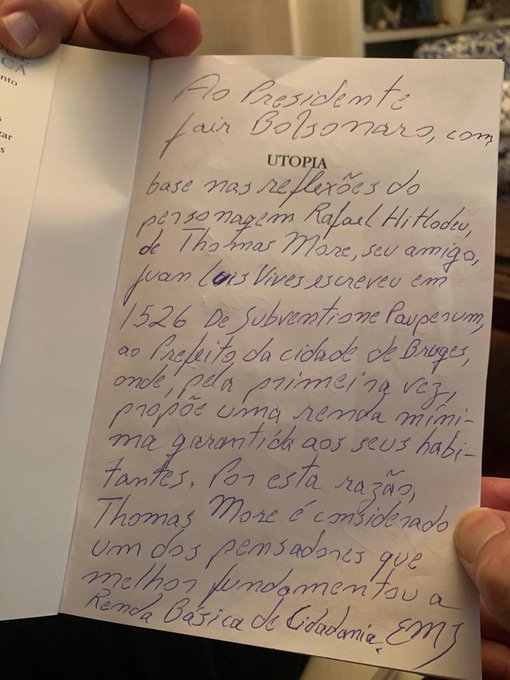 nto
zar
s
Ao Presidente
Jair Bolsonaro, com
UTOPIA
base nas reflexões do
personagem Rafael Hitlodeu,
de Thomas More, seu amigo,
Juan Luis Vives escreveu em
1526 De Subventione Pauperum,
ao Prefeito da cidade de Bruges,
onde, pela primeira vez,
propõe uma renda míni-
ma garantida aos seus habi-
tantes. Por esta razão,
Thomas More é considerado
um dos pensadores que
melhor fundamentou a
Renda Básica de Cidadania. EMS